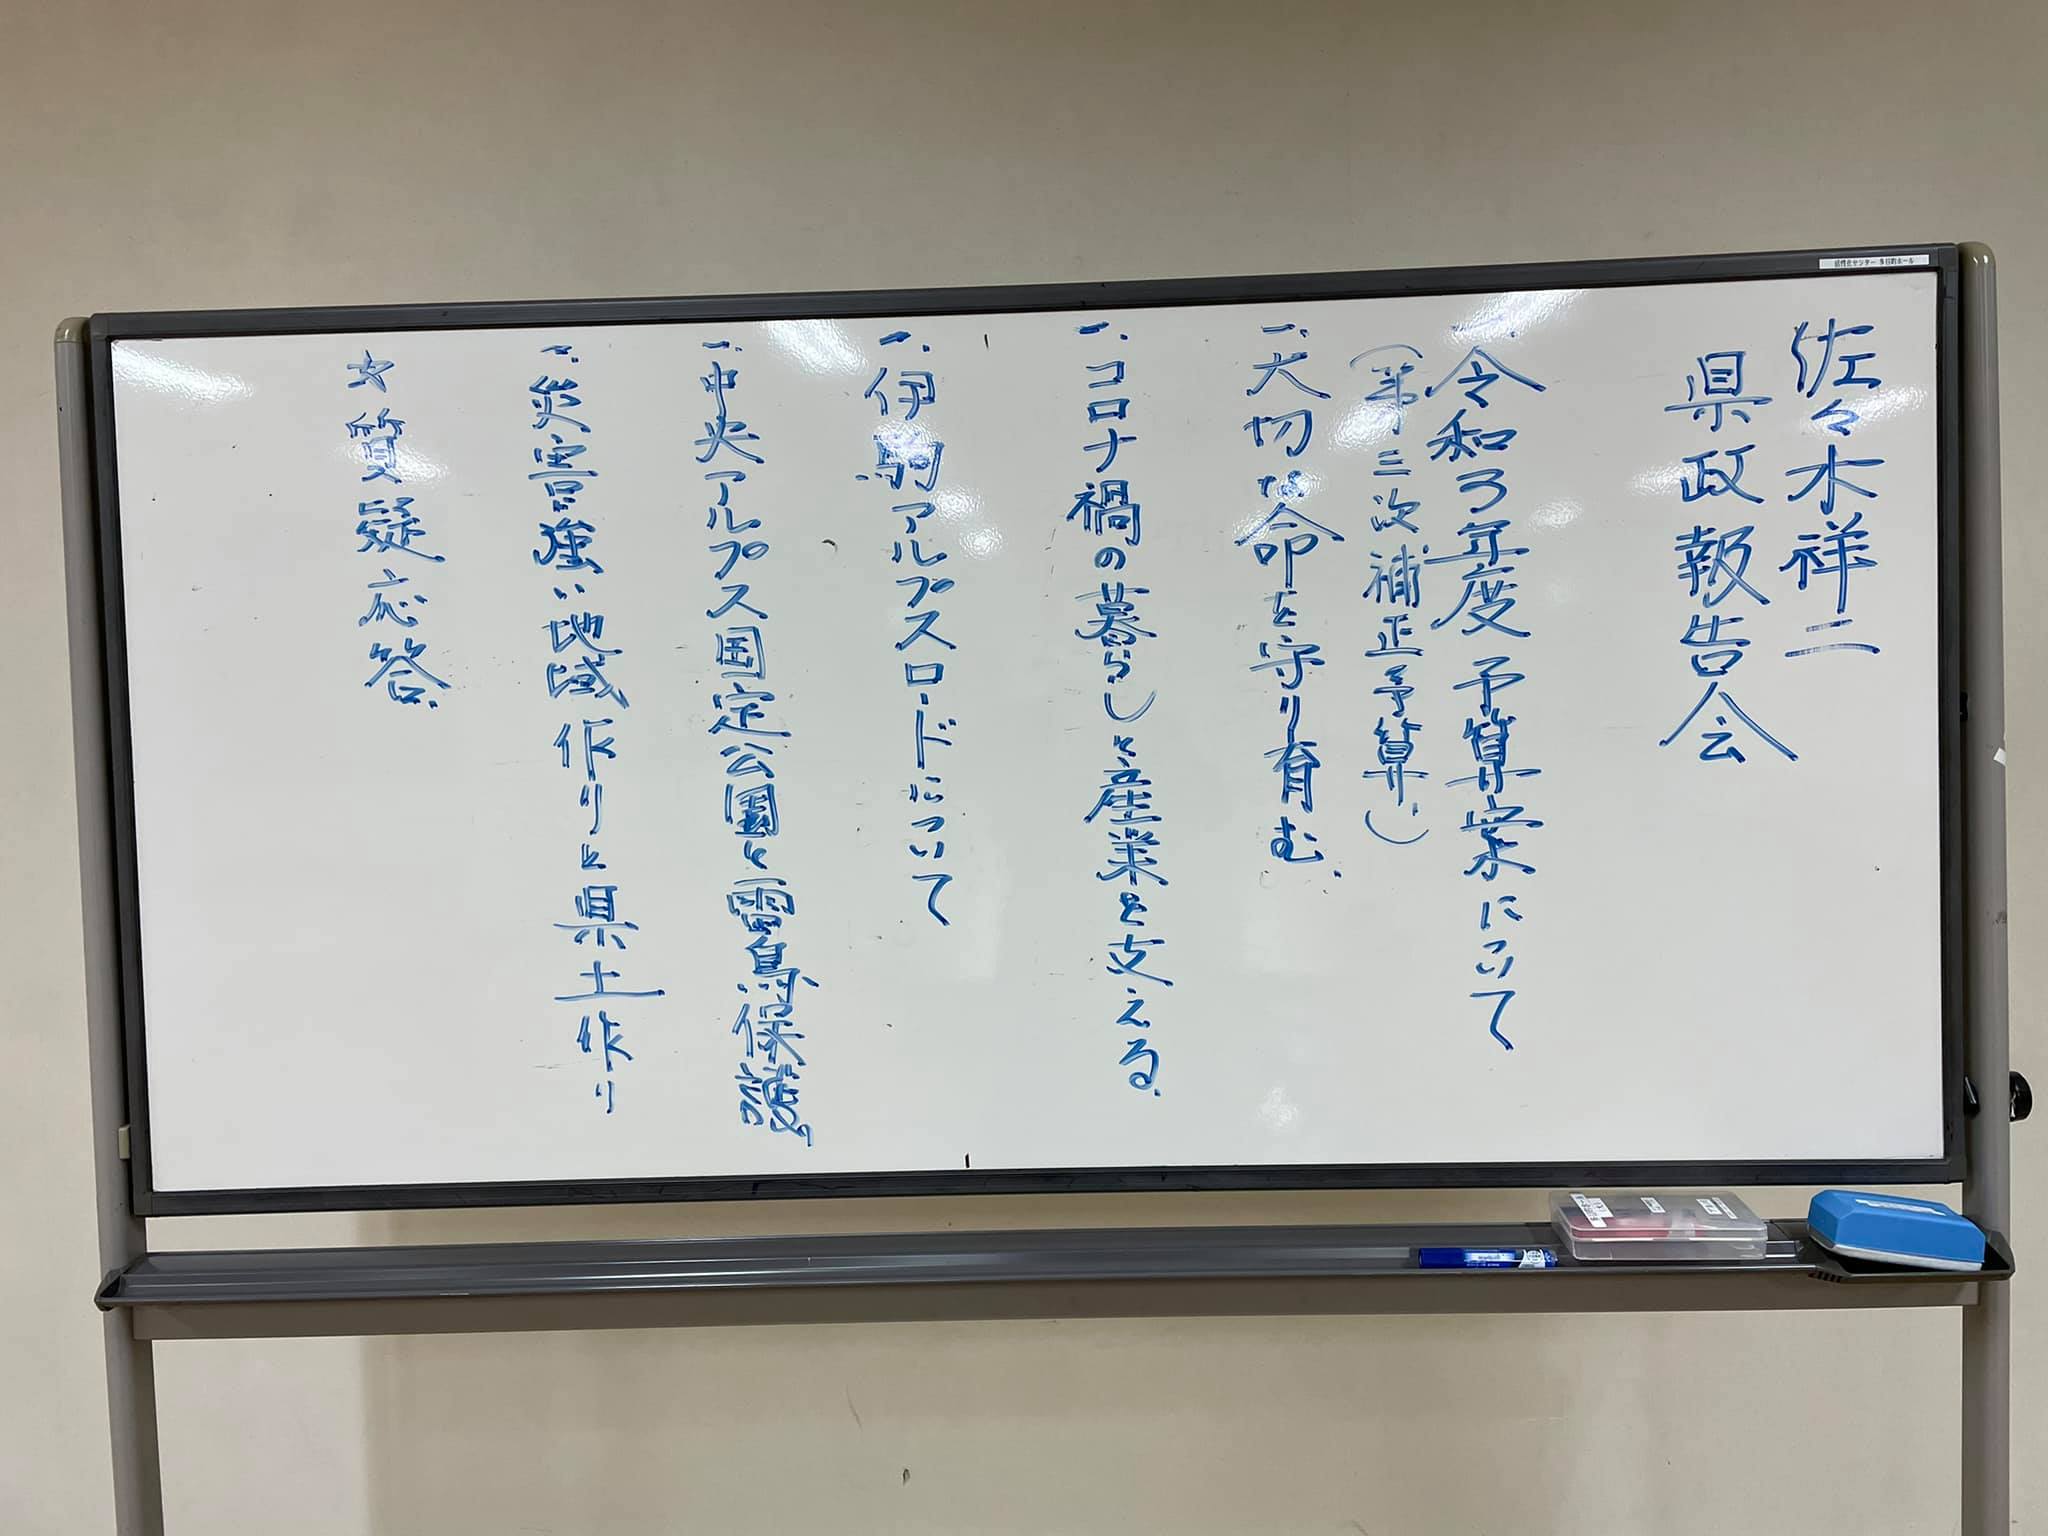 佐々木祥二
県政報告会
一、令和3年度予算案について
（第十三次補正予算）
一、大切な命を守り育む
一、コロナ禍の暮らしと産業を支える
一、伊駒アルプスロードについて
一、中央アルプス国定公園と雷鳥保護
一、災害強い地域作りと県土作り
☆質疑応答